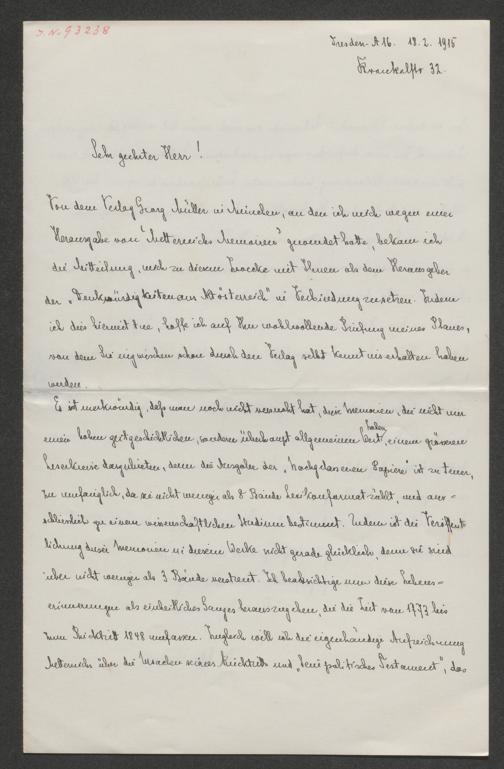 J. N. 93238
Dresden-A 16. 18. 2. 1915
Krenkelstr 32.
Sehr geehrter Herr!
Von dem Verlag Georg Müller in München, an den ich mich wegen einer
Herausgabe von "Metternichs Memoiren" gewendet hatte, bekam ich
die Mitteilung, mich zu diesem Zwecke mit Ihnen als dem Herausgeber
der "Denkwürdigkeiten aus Altösterreich" in Verbindung zu setzen. Indem
ich dies hiermit tue, hoffe ich auf Ihre wohlwollende Prüfung meines Planes,
von dem Sie inzwischen schon durch den Verlag selbst Kenntnis erhalten haben
werden.
Es ist merkwürdig, daß man noch nicht versucht hat, diese Memoiren, die nicht nur
einen hohen zeitgeschichtlichen, sondern überhaupt allgemeinen Wert haben, einem grösseren
Leserkreise darzubieten, denn die Ausgabe der "Nachgelassenen Papiere" ist zu teuer,
zu umfänglich, da sie nicht weniger als 8 Bände Lexikonformat zählt, und aus-
schliesslich zu einem wissenschaftlichen Studium bestimmt. Zudem ist die Veröffent-
lichung dieser Memoiren in diesem Werke nicht gerade glücklich, denn sie sind
über nicht weniger als 3 Bände verstreut. Ich beabsichtige nun diese Lebens-
erinnerungen als einheitliches Ganzes herauszugeben, die die Zeit von 1773 bis
zum Rücktritt 1848 umfassen. Zugleich will ich die eigenhändige Aufzeichnung
Metternichs über die Ursachen seines Rücktritts und "Sein politisches Testament", das